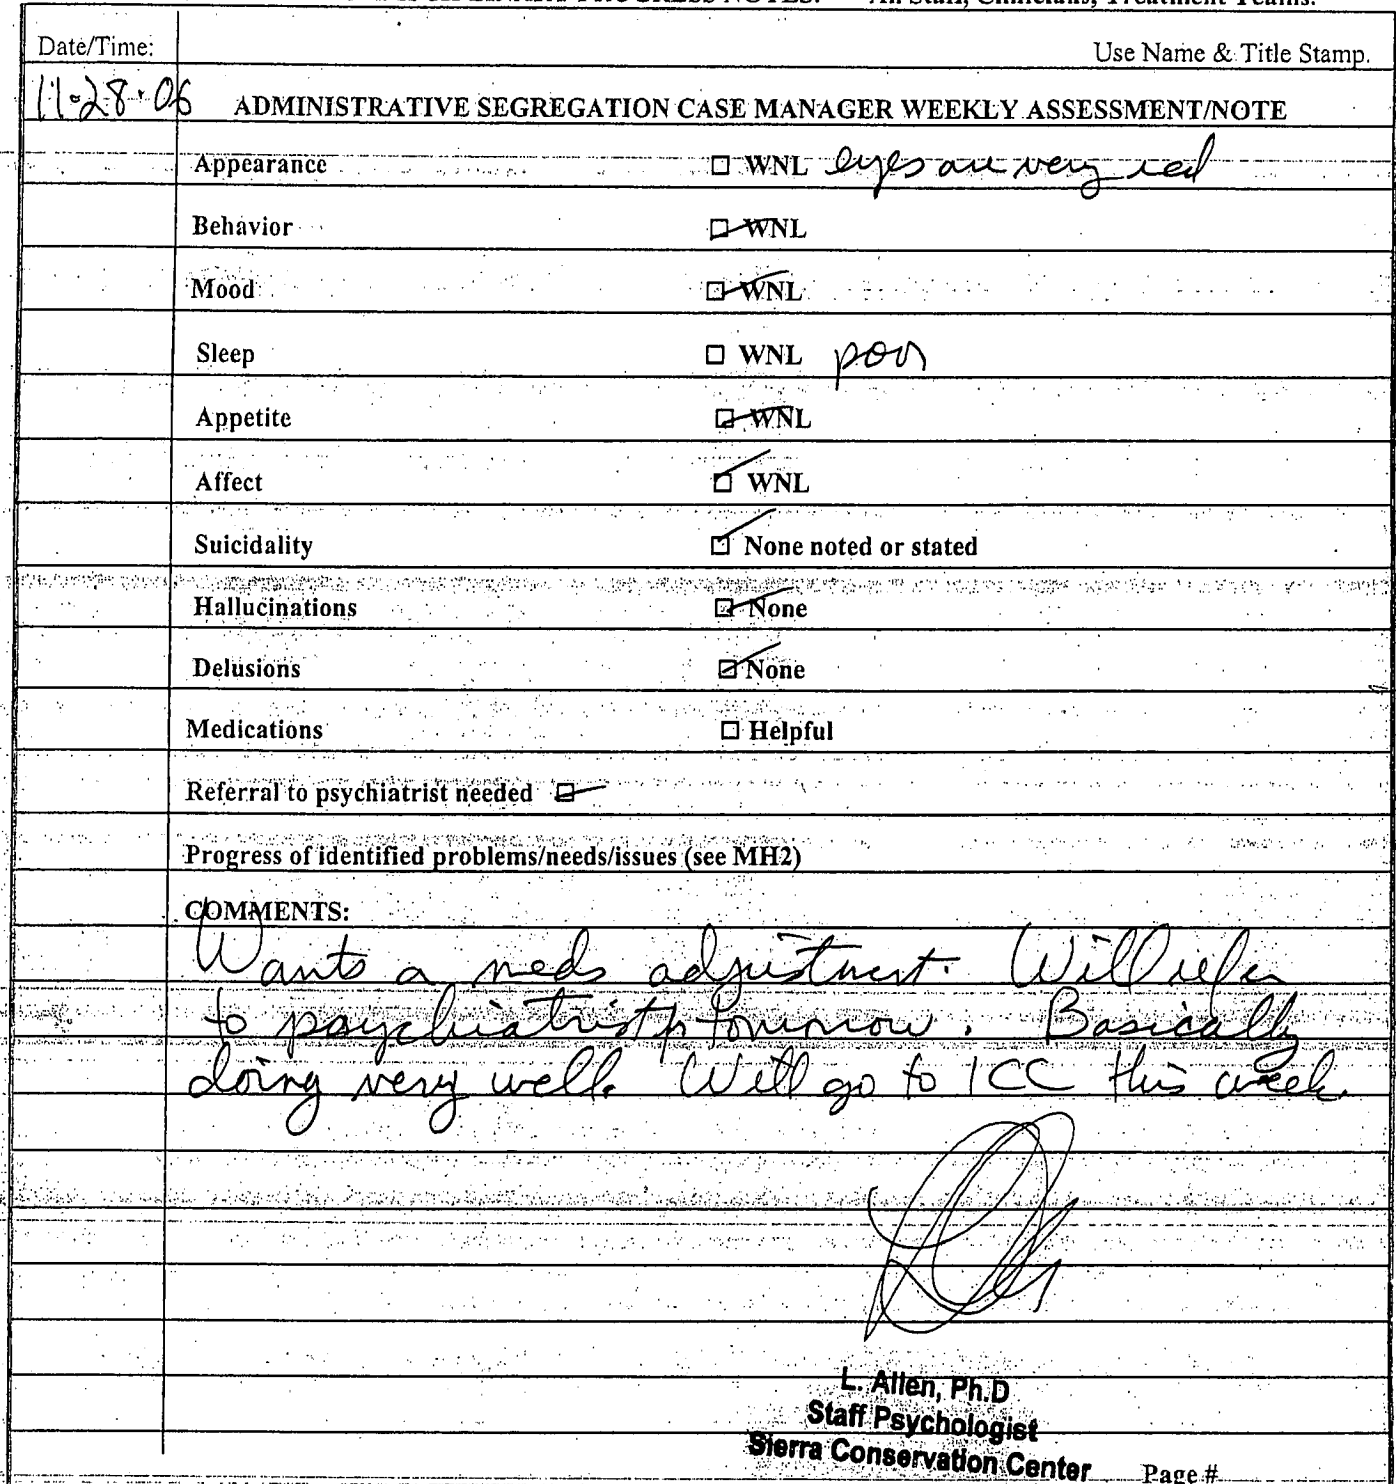 PROGRESS NOTES. All Staff, Clinicians, Treatment Teams.
Date/Time: Use Name & Title Stamp.
11-28-06 ADMINISTRATIVE SEGREGATION CASE MANAGER WEEKLY ASSESSMENT/NOTE
Appearance ☐ WNL eyes are very red
Behavior ☑ WNL
Mood ☑ WNL
Sleep ☐ WNL poor
Appetite ☑ WNL
Affect ☑ WNL
Suicidality ☑ None noted or stated
Hallucinations ☑ None
Delusions ☑ None
Medications ☐ Helpful
Referral to psychiatrist needed ☑
Progress of identified problems/needs/issues (see MH2)
COMMENTS:
Wants a meds adjustment. Will refer
to psychiatrist tomorrow. Basically
doing very well. Will go to ICC this week.
L. Allen, Ph.D
Staff Psychologist
Sierra Conservation Center
Page #